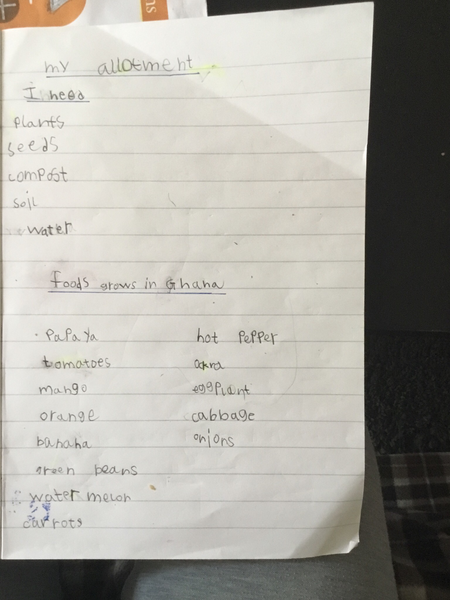 ns
my allotment
I need
plants
seeds
compost
soil
water
Foods grows in Ghana
papaya
tomatoes
mango
orange
banana
green beans
water melon
carrots
hot pepper
okra
eggplant
cabbage
onions